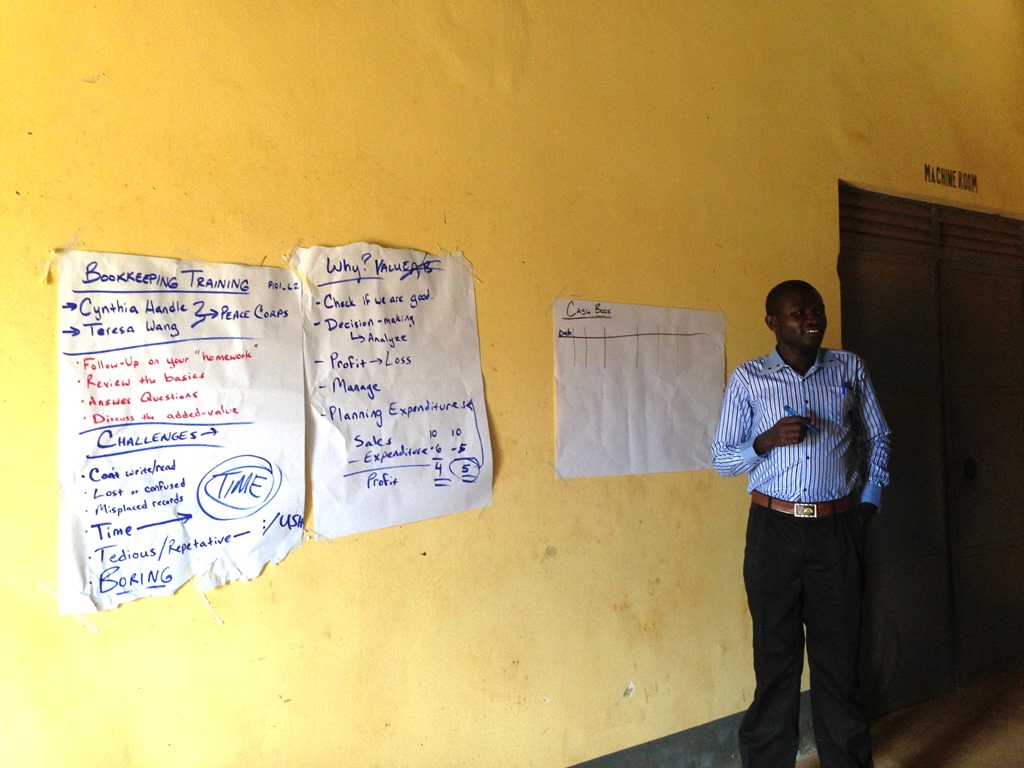 BOOKKEEPING TRAINING
→ Cynthia Handle
→ Teresa Wang
→ PEACE CORPS
· Follow-Up on your "homework"
· Review the basics
· Answer Questions
· Discuss the added-value
CHALLENGES →
· write/read
· Lost or confused
· Misplaced records
· Time →
TIME
· Tedious/Repetative — :/
· BORING
Why? VALUE
- Check if we are good.
- Decision-making
↳ Analyze
- Profit → Loss
- Manage
- Planning Expenditures
Sales 10 10
- Expenditure -6 -5
Profit 4 5
CASH BOOK
Date
MACHINE ROOM